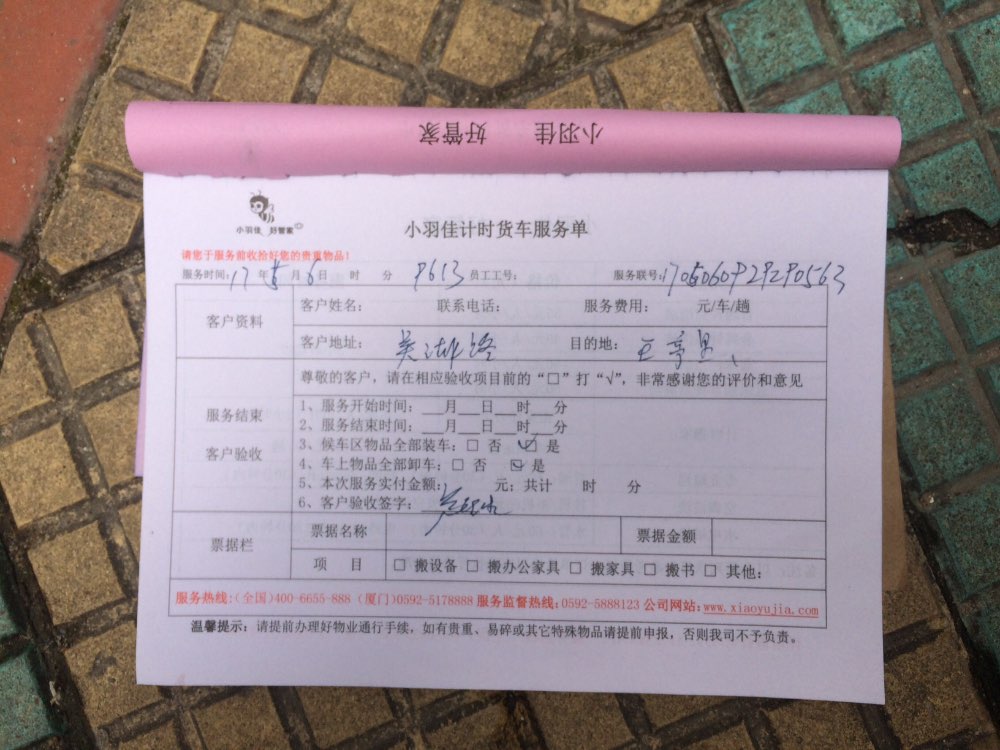 小羽佳 好管家
小羽佳 好管家
小羽佳计时货车服务单
请您于服务前收拾好您的贵重物品!
服务时间: 17 年 5 月 6 日 时 分 P613 员工工号: 服务联号:
客户资料
客户姓名: 联系电话: 服务费用: 元/车/趟
客户地址: 吴湖路 目的地:
服务结束
客户验收
尊敬的客户,请在相应验收项目前的“□”打“√”,非常感谢您的评价和意见
1、服务开始时间:___月___日___时___分
2、服务结束时间:___月___日___时___分
3、候车区物品全部装车:□ 否 ☑ 是
4、车上物品全部卸车:□ 否 ☑ 是
5、本次服务实付金额: 元;共计 时 分
6、客户验收签字:
票据栏
票据名称 票据金额
项 目 □ 搬设备 □ 搬办公家具 □ 搬家具 □ 搬书 □ 其他:
服务热线:(全国)400-6655-888 (厦门)0592-5178888 服务监督热线:0592-5888123 公司网站:www.xiaoyujia.com
温馨提示:请提前办理好物业通行手续,如有贵重、易碎或其它特殊物品请提前申报,否则我司不予负责。